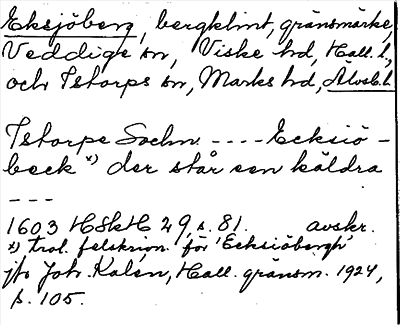 Eksjöberg, bergklint, gränsmärke,
Veddige sn, Viske hd, Hall. l.,
och Istorps sn, Marks hd, Älvsb. l.
Istorpe Sochn - - - - Ecksiö -
beck *) der står een käldra
- - -
1603 HSkH 29, s. 81. avskr.
*) trol. felskrivn. för 'Ecksiöbergh',
jfr Joh. Kalén, Hall. gränsm. 1924,
s. 105.